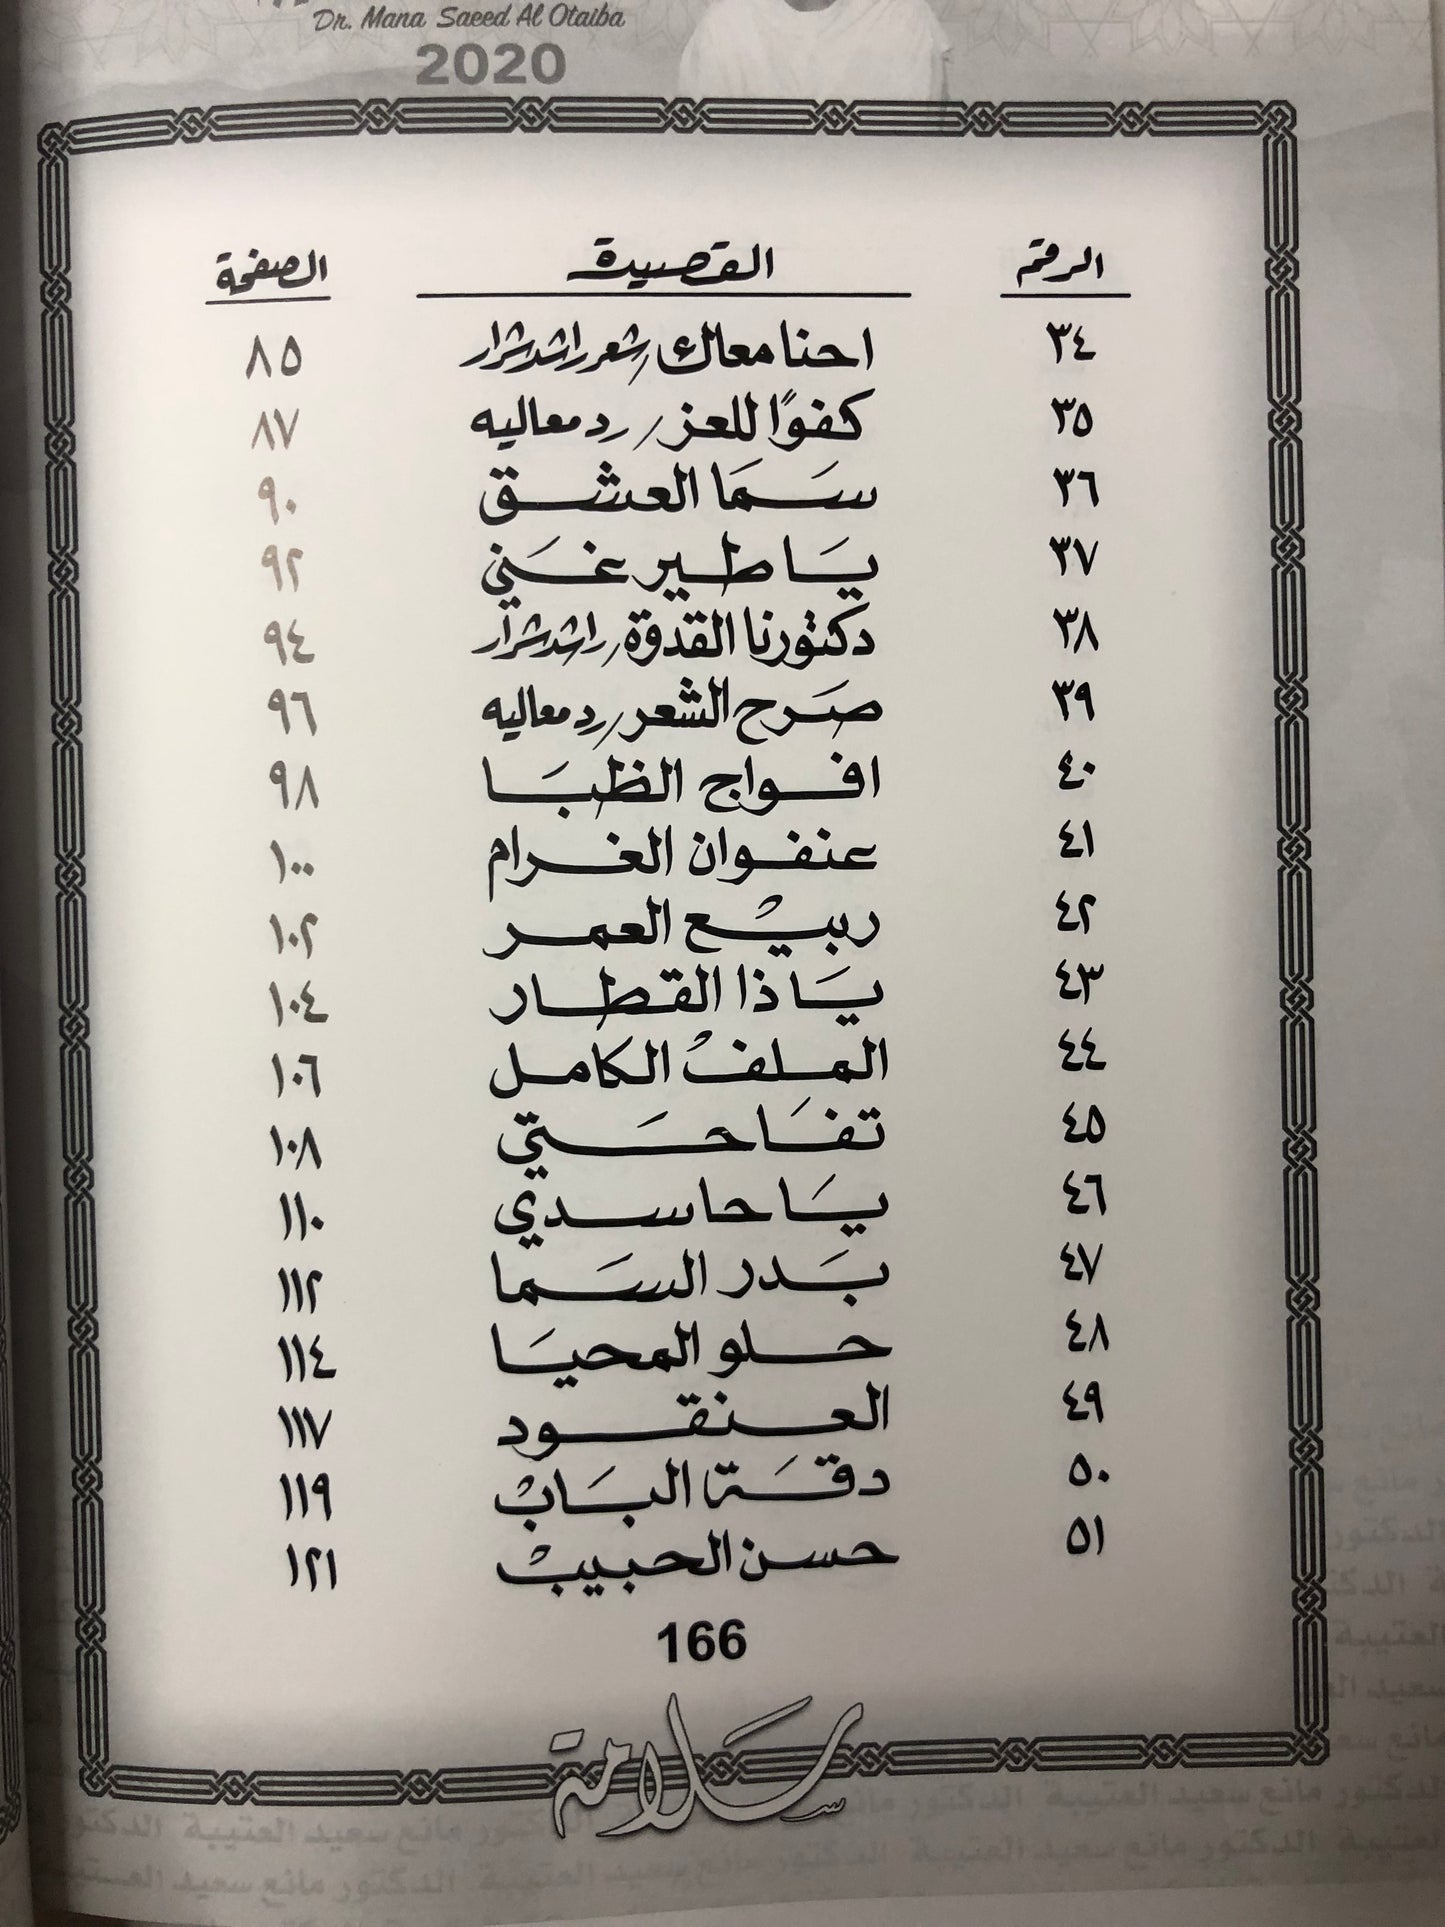 Dr. Mana Saeed Al Otaiba
2020
الرقم القصيدة الصفحة
٣٤ احنا معاك / شعر راشد شرار ٨٥
٣٥ كفوًا للعز / رد معاليه ٨٧
٣٦ سَمَا العشق ٩٠
٣٧ يَا طير غَني ٩٢
٣٨ دكتورنا القدوة / راشد شرار ٩٤
٣٩ صَرح الشعر / رد معاليه ٩٦
٤٠ افواج الظبَا ٩٨
٤١ عنفوان الغرام ١٠٠
٤٢ ربيعْ العمر ١٠٢
٤٣ يَا ذا القطار ١٠٤
٤٤ الملفْ الكامل ١٠٦
٤٥ تفَاحَتي ١٠٨
٤٦ يَا حاسدي ١١٠
٤٧ بَدر السَما ١١٢
٤٨ حلو المحيَا ١١٤
٤٩ العنقود ١١٧
٥٠ دقَة البَابْ ١١٩
٥١ حسن الحبيبْ ١٢١
166
سلامة
الدكتور مانع سعيد العتيبة الدكتور مانع
العتيبة الدكتور مانع سعيد العتيبة الدكتور مانع سعيد العتيبة الدكتور